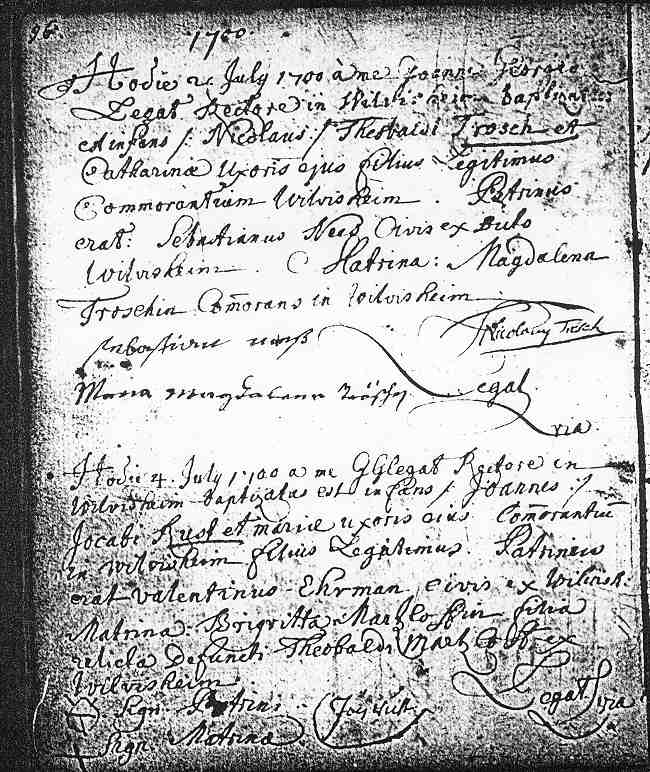 96
1700.
Hodie 2. July 1700 à me Joanne Georgio
Legat Rectore in baptizatus
est infans /: Nicolaus :/ Theobaldi Trosch et
Catharinæ uxoris ejus filius Legitimus
Commorantium Wilvisheim. Patrinus
erat: Sebastianus Civis ex
Wilvisheim. Matrina: Magdalena
Troschin Com̄orans in Wilvisheim
Nicolaus Trosch
Maria Magdalena Legat
Hodie 4. July 1700 a me Legat Rectore in
Wilvisheim baptizatus est infans /: Joannes :/
Jacobi Rust et Mariæ uxoris eius Com̄orantiū
in Wilvisheim filius Legitimus. Patrinus
erat Valentinus Ehrman civis ex Wilvish:
Matrina: Brigritta Martzloffin filia
relicta Defuncti Theobaldi Martzloff ex
Wilvisheim
Sign: Patrini Legat
Sign: Matrinæ